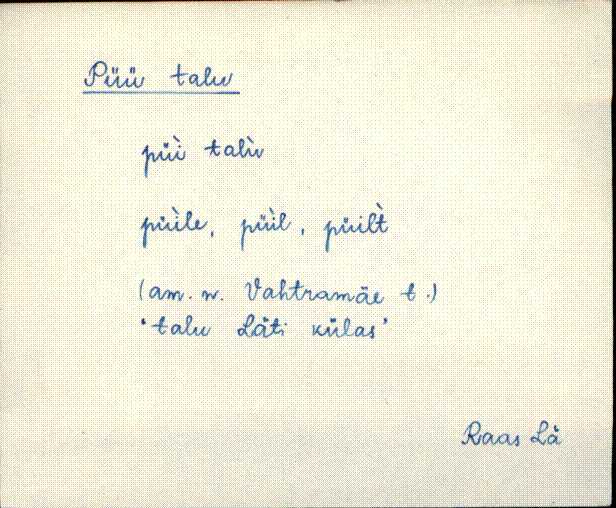 Püü talu
püì talù
püìle, püìl, püilt̀
(am. n. Vahtramäe t.)
'talu Läti külas'
Raas Lä